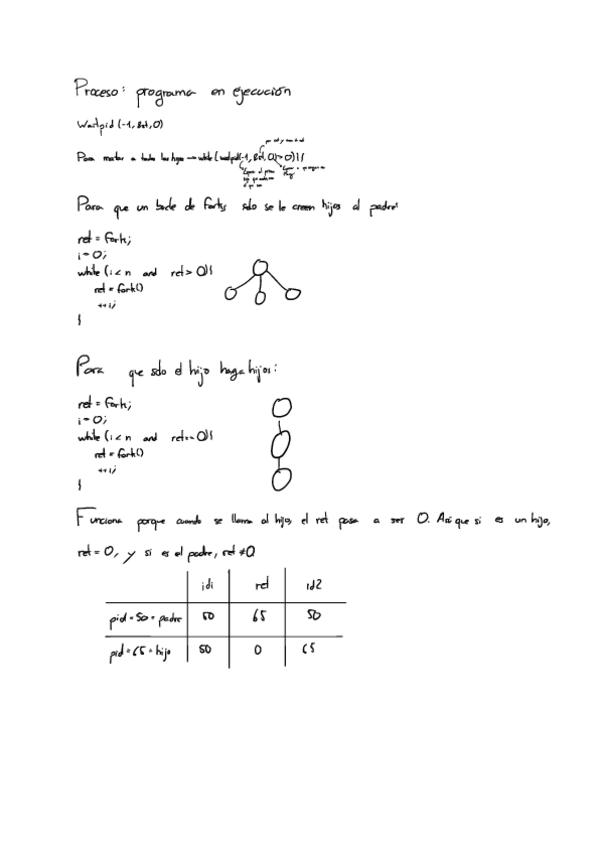 Proceso: programa en ejecución
Waitpid (-1, &st, 0)
Para matar a todos los hijos → while (waitpid(-1, &st, 0) > 0) {}
Para que un bucle de forks solo se le creen hijos al padre:
ret = fork;
i = 0;
while (i < n and ret > 0) {
ret = fork()
++i;
}
Para que solo el hijo haga hijos:
ret = fork;
i = 0;
while (i < n and ret == 0) {
ret = fork()
++i;
}
Funciona porque cuando se llama al hijo, el ret pasa a ser 0. Así que si es un hijo,
ret = 0, y si es el padre, ret ≠ 0
id1 ret id2
pid = 50 = padre 50 65 50
pid = 65 = hijo 50 0 65